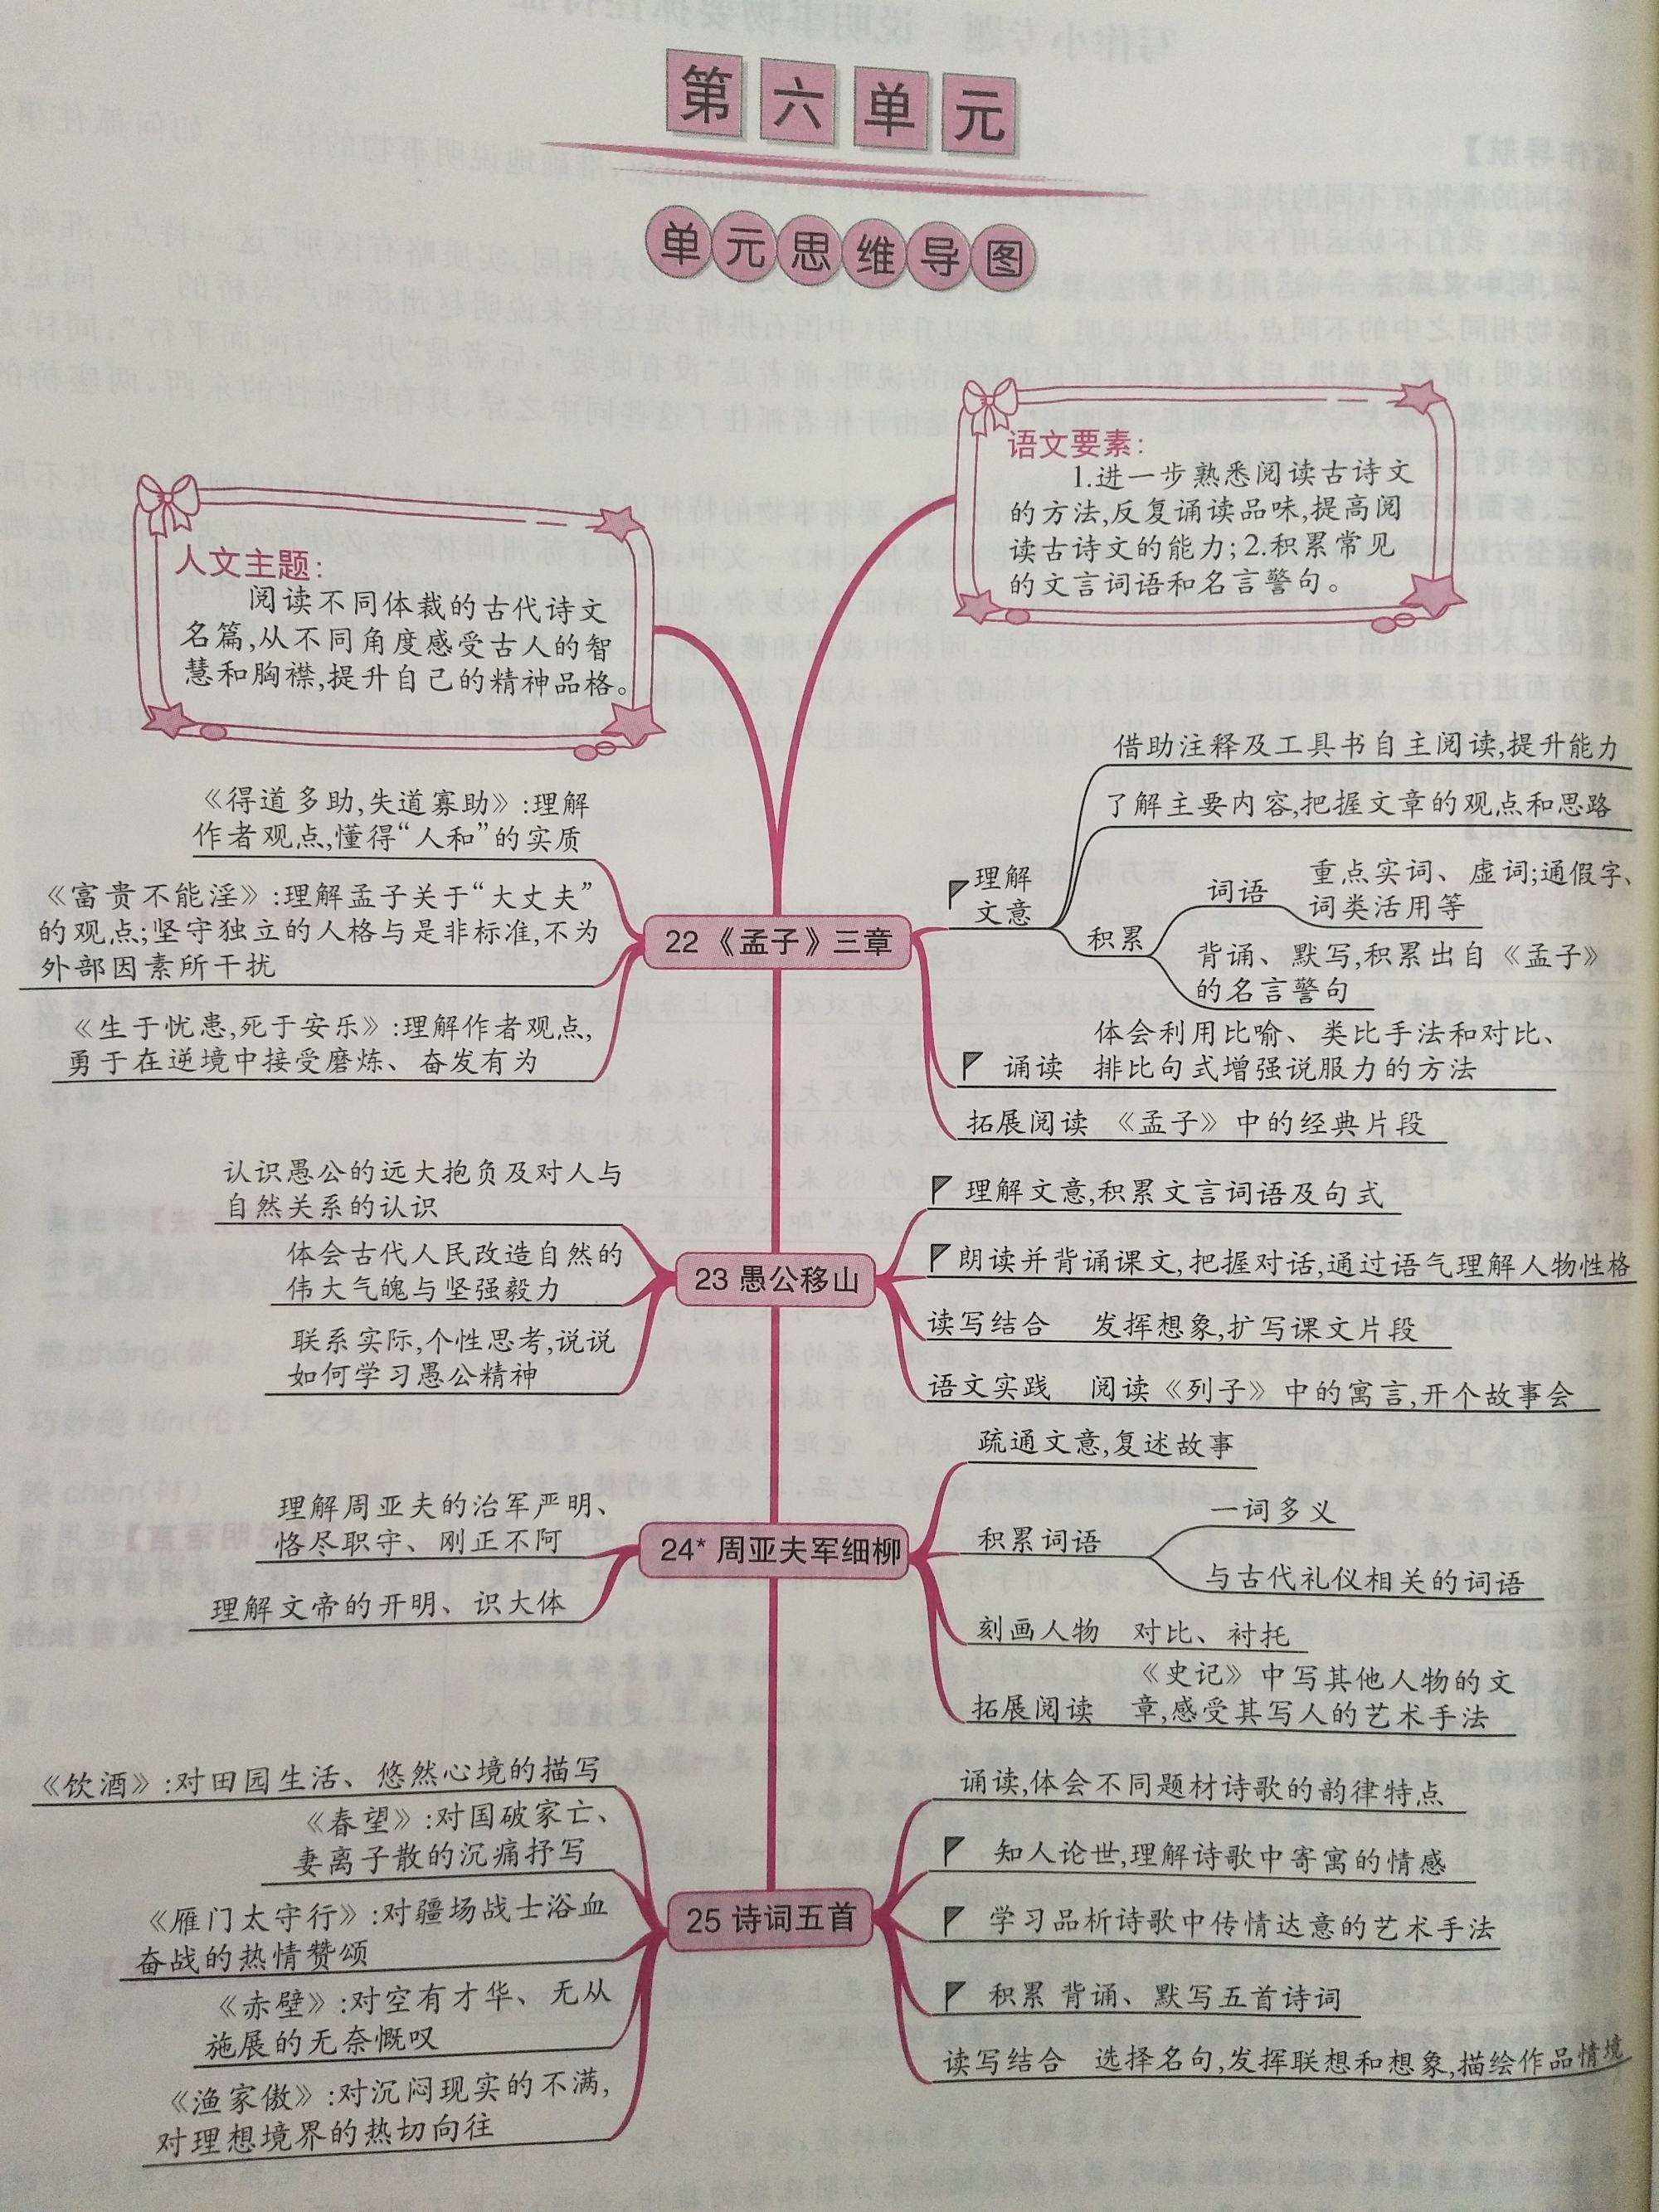 第六单元
单元思维导图
人文主题：
阅读不同体裁的古代诗文
名篇,从不同角度感受古人的智
慧和胸襟,提升自己的精神品格。
语文要素：
1.进一步熟悉阅读古诗文
的方法,反复诵读品味,提高阅
读古诗文的能力；2.积累常见
的文言词语和名言警句。
22《孟子》三章
《得道多助,失道寡助》:理解
作者观点,懂得“人和”的实质
《富贵不能淫》:理解孟子关于“大丈夫”
的观点;坚守独立的人格与是非标准,不为
外部因素所干扰
《生于忧患,死于安乐》:理解作者观点,
勇于在逆境中接受磨炼、奋发有为
理解
文意
借助注释及工具书自主阅读,提升能力
了解主要内容,把握文章的观点和思路
积累
词语
重点实词、虚词;通假字、
词类活用等
背诵、默写,积累出自《孟子》
的名言警句
诵读
体会利用比喻、类比手法和对比、
排比句式增强说服力的方法
拓展阅读 《孟子》中的经典片段
23 愚公移山
认识愚公的远大抱负及对人与
自然关系的认识
体会古代人民改造自然的
伟大气魄与坚强毅力
联系实际,个性思考,说说
如何学习愚公精神
理解文意,积累文言词语及句式
朗读并背诵课文,把握对话,通过语气理解人物性格
读写结合 发挥想象,扩写课文片段
语文实践 阅读《列子》中的寓言,开个故事会
24* 周亚夫军细柳
理解周亚夫的治军严明、
恪尽职守、刚正不阿
理解文帝的开明、识大体
疏通文意,复述故事
积累词语
一词多义
与古代礼仪相关的词语
刻画人物 对比、衬托
拓展阅读
《史记》中写其他人物的文
章,感受其写人的艺术手法
25 诗词五首
《饮酒》:对田园生活、悠然心境的描写
《春望》:对国破家亡、
妻离子散的沉痛抒写
《雁门太守行》:对疆场战士浴血
奋战的热情赞颂
《赤壁》:对空有才华、无从
施展的无奈慨叹
《渔家傲》:对沉闷现实的不满,
对理想境界的热切向往
诵读,体会不同题材诗歌的韵律特点
知人论世,理解诗歌中寄寓的情感
学习品析诗歌中传情达意的艺术手法
积累 背诵、默写五首诗词
读写结合 选择名句,发挥联想和想象,描绘作品情境